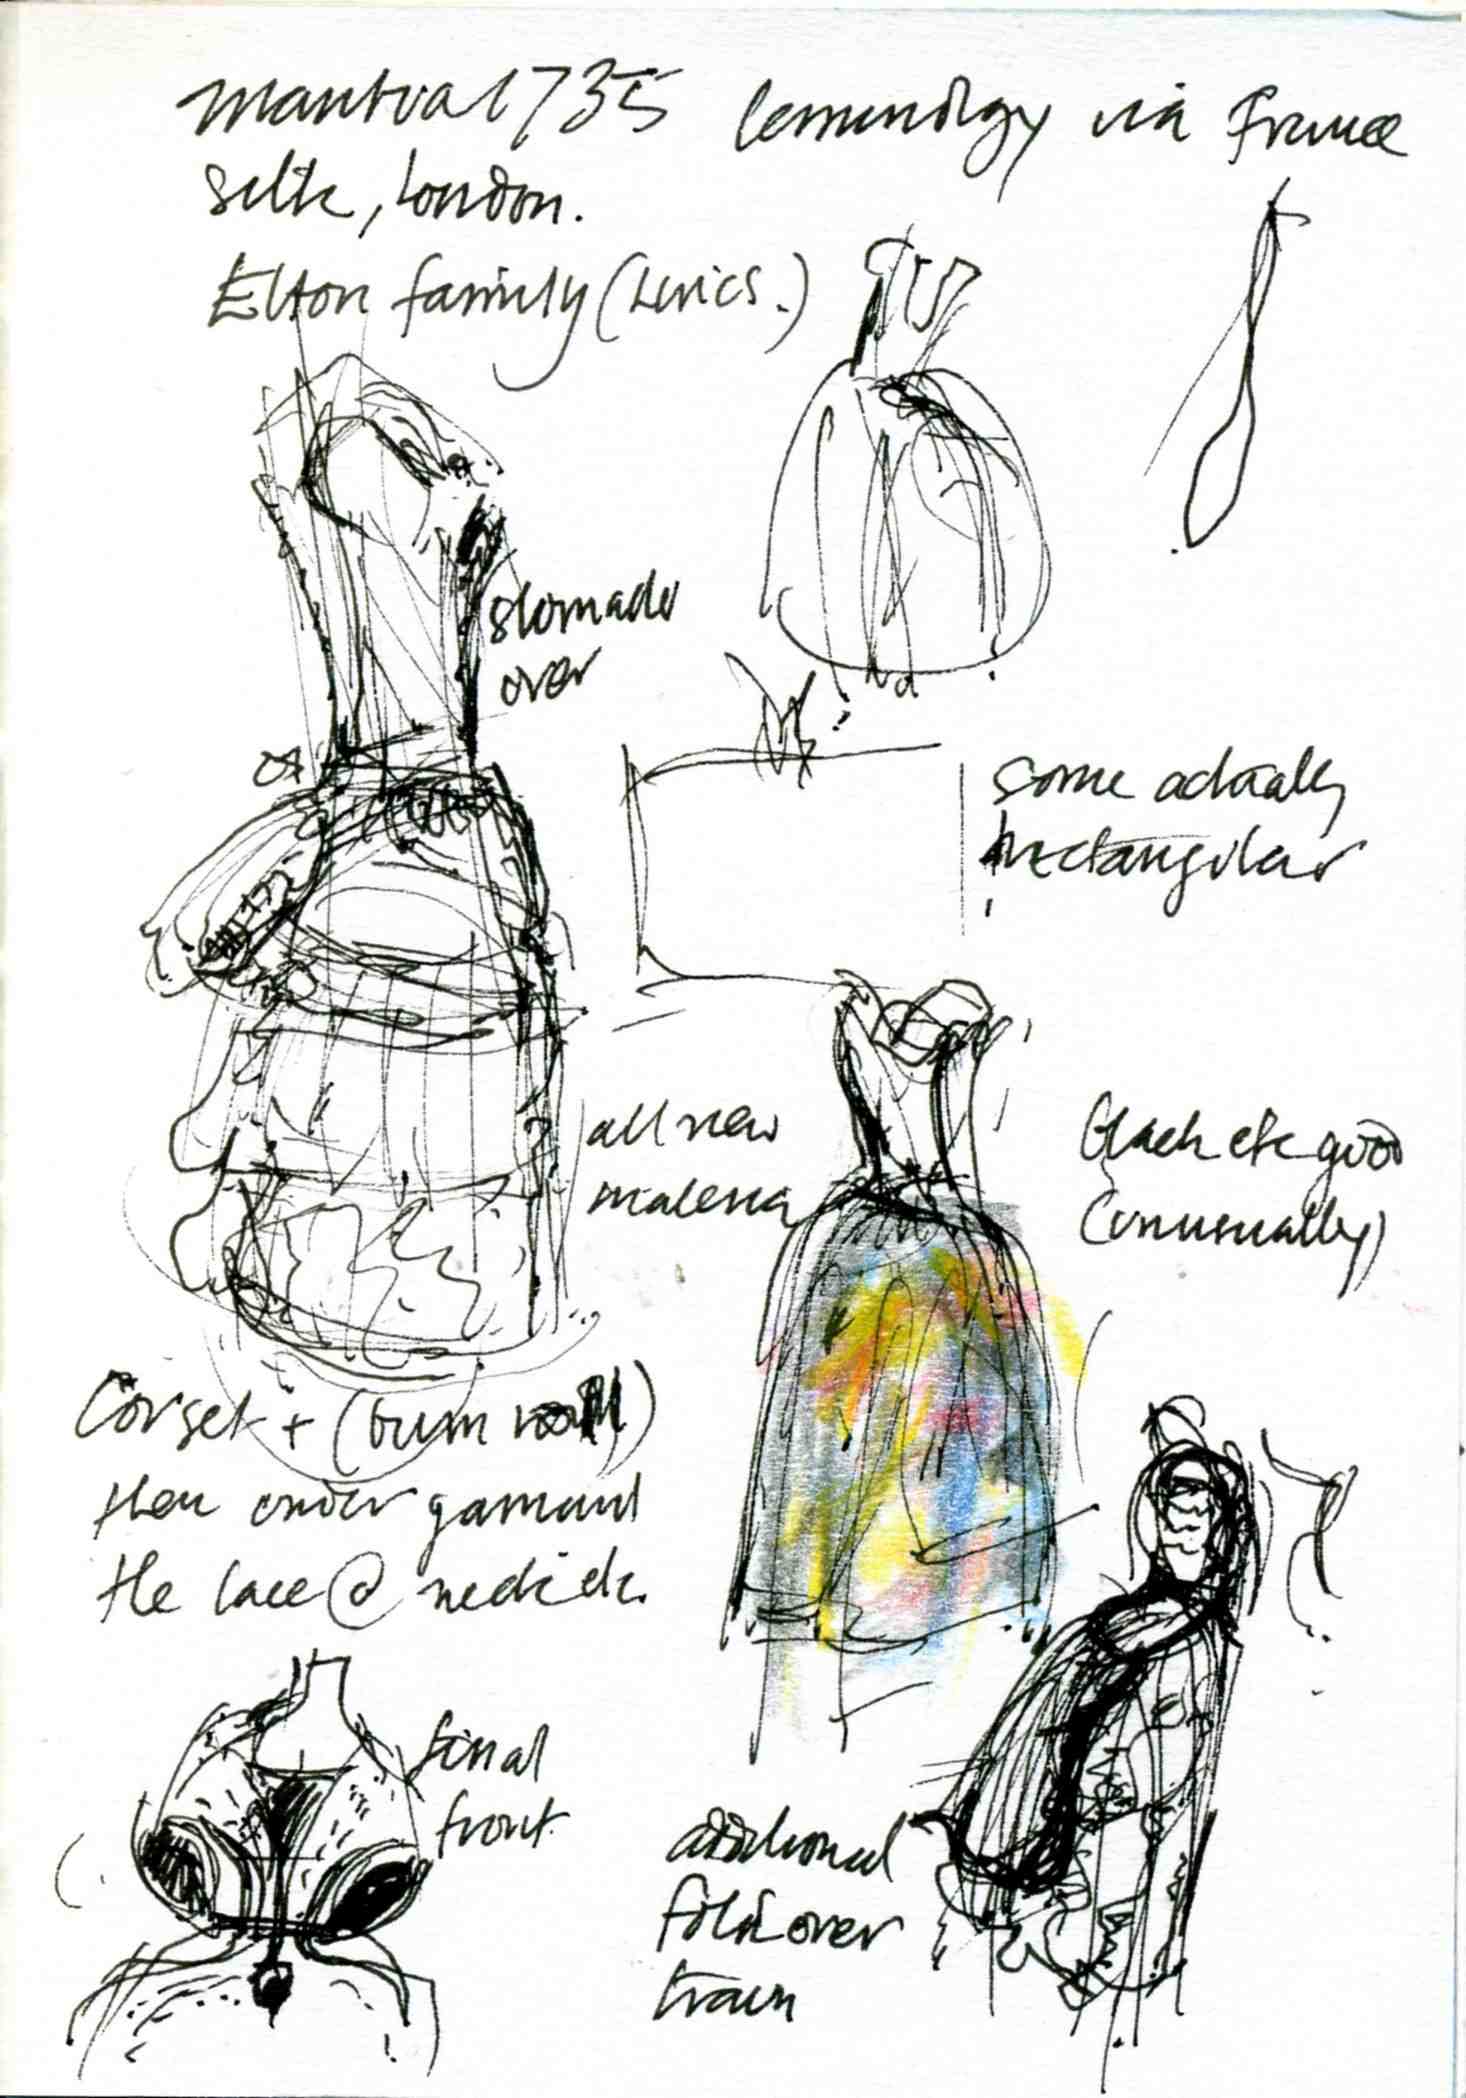 mantua 1735 terminology via France
Silk, London.
Elton family (Leics.)
stomacher
over
some actually
rectangular
all new
material
black etc good
(unusually)
Corset + (bum roll)
then under garment
the lace @ neck etc.
final
front
additional
fold over
train